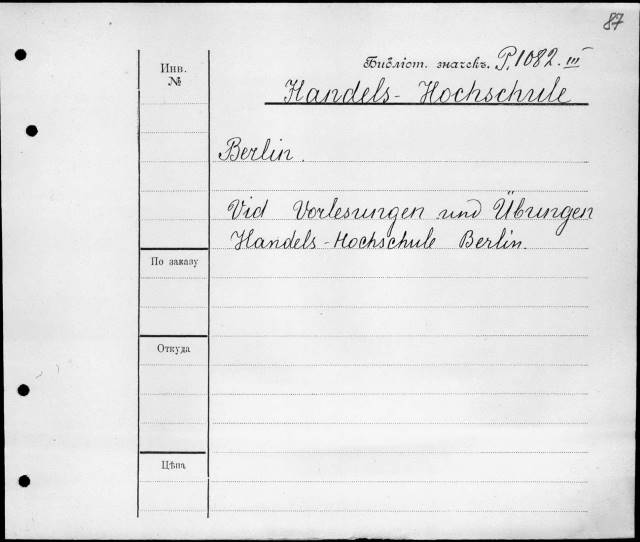 87
Инв.
№
Библіот. значекъ. P.1082.III
Handels-Hochschule
Berlin.
Vid Vorlesungen und Übungen
Handels-Hochschule Berlin.
По заказу
Откуда
Цѣна